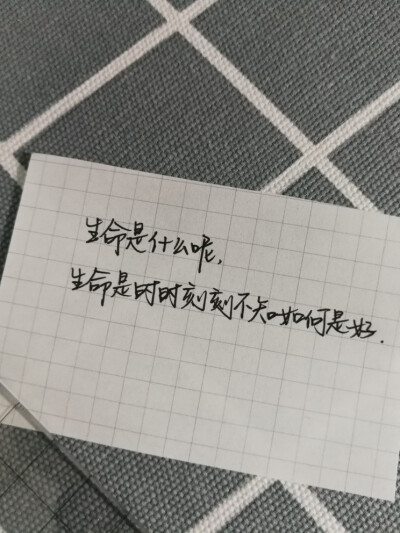 生命是什么呢,
生命是时时刻刻不知如何是好.